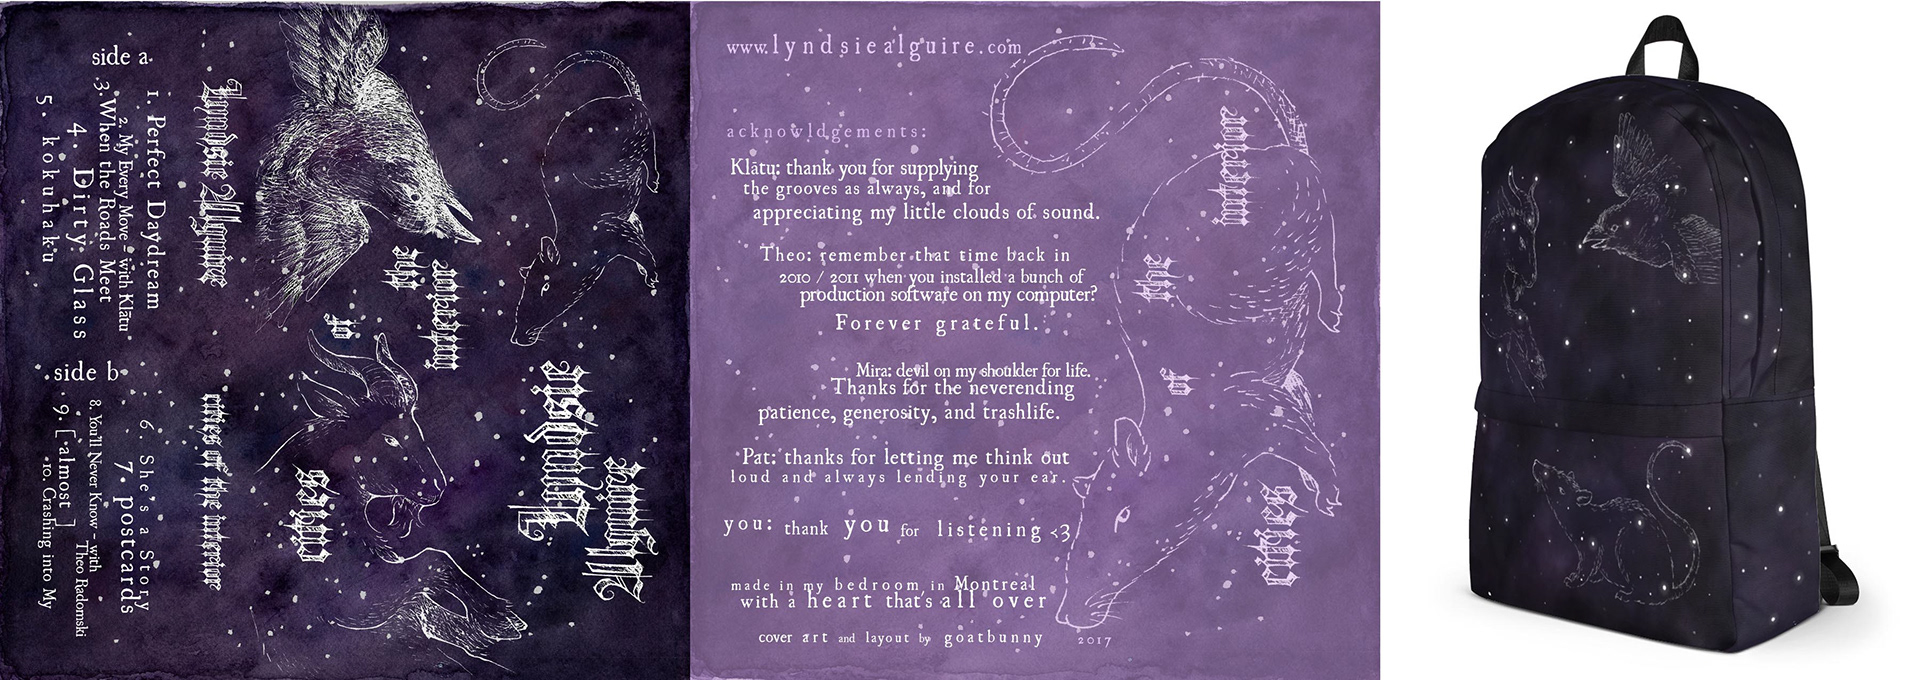 side a
1. Perfect Daydream
2. My Every Move - with Klātu
3. When the Roads Meet
4. Dirty Glass
5. kokuhaku
side b
6. She's a Story
7. postcards
8. You'll Never Know - with
Theo Radomski
9. [almost]
10. Crashing into My
Lyndsie Alguire
cities of the interior
cities
of
the
interior
Lyndsie
Alguire
www.lyndsiealguire.com
acknowldgements:
Klātu: thank you for supplying
the grooves as always, and for
appreciating my little clouds of sound.
Theo: remember that time back in
2010 / 2011 when you installed a bunch of
production software on my computer?
Forever grateful.
Mira: devil on my shoulder for life.
Thanks for the neverending
patience, generosity, and trashlife.
Pat: thanks for letting me think out
loud and always lending your ear.
you: thank you for listening <3
made in my bedroom in Montreal
with a heart that's all over
cover art and layout by goatbunny 2017
cities
of
the
interior